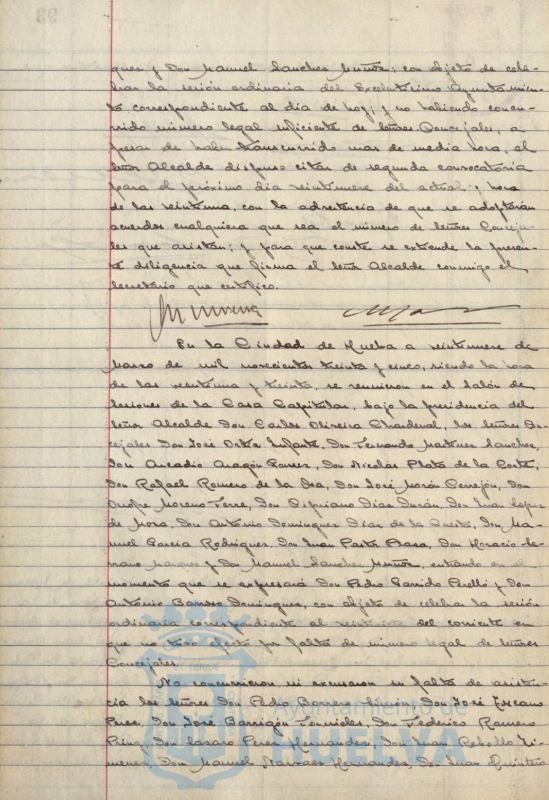 quez y Don Manuel Sanchez Muñoz; con objeto de cele-
brar la sesión ordinaria del Excelentísimo Ayuntamien-
to correspondiente al dia de hoy; y no habiendo concu-
rrido número legal suficiente de señores Concejales, a
pesar de haber transcurrido mas de media hora, el
señor Alcalde dispuso citar de segunda convocatoria
para el próximo dia veintinueve del actual y hora
de las veintiuna, con la advertencia de que se adoptarán
acuerdos cualquiera que sea el número de señores Conceja-
les que asistan; y para que conste se extiende la presen-
te diligencia que firma el señor Alcalde conmigo el
Secretario que certifico.
En la Ciudad de Huelva a veintinueve de
Marzo de mil novecientos treinta y cinco, siendo la hora
de las veintiuna y treinta, se reunieron en el Salón de
sesiones de la Casa Capitular, bajo la presidencia del
señor Alcalde Don Carlos Oliveira Chardenal, los señores Con-
cejales Don José Ortiz Infante, Don Fernando Martinez Sanchez,
Don Arcadio Aragón Gomez, Don Nicolás Plata de la Corte,
Don Rafael Romero de la Osa, Don José Morón Cerrejón, Don
Onofre Moreno Terre, Don Cipriano Diaz Durán, Don Juan Lopez
de Mora, Don Antonio Dominguez Diaz de la Cueto, Don Ma-
nuel Garcia Rodriguez, Don Juan Pastor Plaza, Don Horacio Se-
rrano Marquez y Don Manuel Sanchez Muñoz, entrando en el
momento que se expresará Don Pedro Garrido Perelló y Don
Antonio Barroso Dominguez, con objeto de celebrar la sesión
ordinaria correspondiente al del corriente en
que no tuvo efecto por falta de número legal de señores
Concejales.
No concurrieron ni excusaron su falta de asisten-
cia los señores Don Pedro Borrero Don José Toscano
Perez, Don José Barrigón Don Federico Ramirez
Don Lazaro Perez Hernandez, Don Juan Rebollo Ji-
menez, Don Manuel Narvaez Hernandez, Don Juan Quintero
Ayuntamiento de
HUELVA